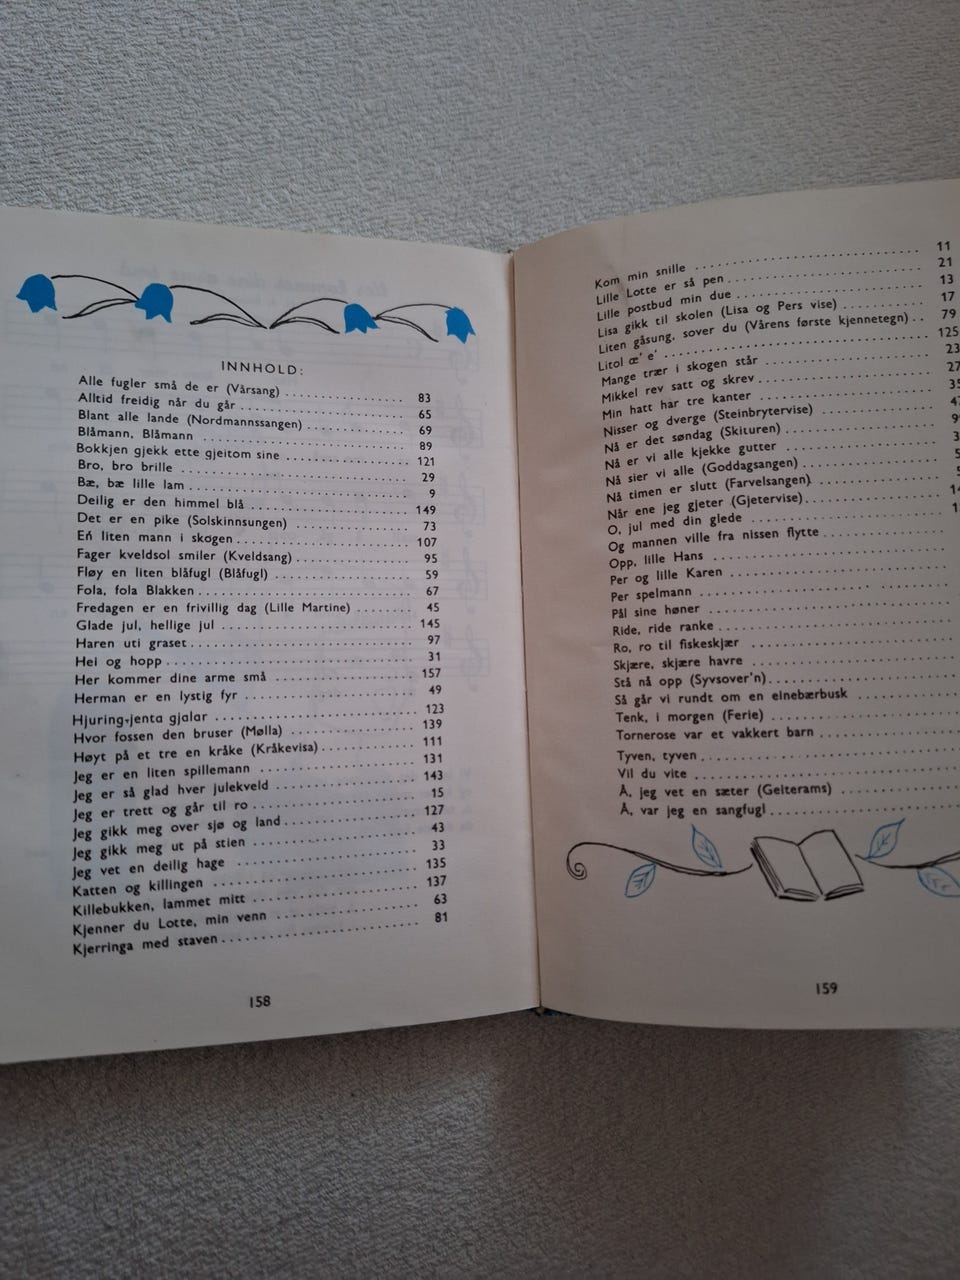 INNHOLD:
Alle fugler små de er (Vårsang) 83
Alltid freidig når du går 65
Blant alle lande (Nordmannssangen) 69
Blåmann, Blåmann 89
Bokkjen gjekk ette gjeitom sine 121
Bro, bro brille 29
Bæ, bæ lille lam 9
Deilig er den himmel blå 149
Det er en pike (Solskinnsungen) 73
Eń liten mann i skogen 107
Fager kveldsol smiler (Kveldsang) 95
Fløy en liten blåfugl (Blåfugl) 59
Fola, fola Blakken 67
Fredagen er en frivillig dag (Lille Martine) 45
Glade jul, hellige jul 145
Haren uti graset 97
Hei og hopp 31
Her kommer dine arme små 157
Herman er en lystig fyr 49
Hjuring-jenta gjalar 123
Hvor fossen den bruser (Mølla) 139
Høyt på et tre en kråke (Kråkevisa) 111
Jeg er en liten spillemann 131
Jeg er så glad hver julekveld 143
Jeg er trett og går til ro 15
Jeg gikk meg over sjø og land 127
Jeg gikk meg ut på stien 43
Jeg vet en deilig hage 33
Katten og killingen 135
Killebukken, lammet mitt 137
Kjenner du Lotte, min venn 63
Kjerringa med staven 81
158
Kom min snille 11
Lille Lotte er så pen 21
Lille postbud min due 13
Lisa gikk til skolen (Lisa og Pers vise) 17
Liten gåsung, sover du (Vårens første kjennetegn) 79
Litol æ' e' 125
Mange trær i skogen står 23
Mikkel rev satt og skrev 27
Min hatt har tre kanter 35
Nisser og dverge (Steinbrytervise)
Nå er det søndag (Skituren)
Nå er vi alle kjekke gutter
Nå sier vi alle (Goddagsangen)
Nå timen er slutt (Farvelsangen)
Når ene jeg gjeter (Gjetervise)
O, jul med din glede
Og mannen ville fra nissen flytte
Opp, lille Hans
Per og lille Karen
Per spelmann
Pål sine høner
Ride, ride ranke
Ro, ro til fiskeskjær
Skjære, skjære havre
Stå nå opp (Syvsover'n)
Så går vi rundt om en einebærbusk
Tenk, i morgen (Ferie)
Tornerose var et vakkert barn
Tyven, tyven
Vil du vite
Å, jeg vet en sæter (Geiterams)
Å, var jeg en sangfugl
159